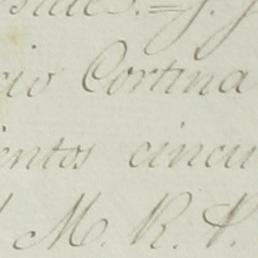 cio Cortina
ientos cincu
M. R. P.